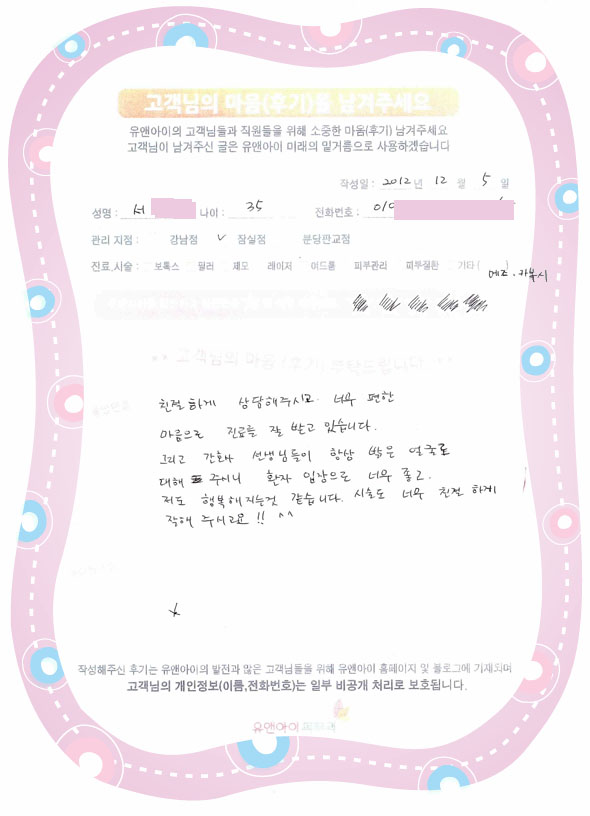 고객님의 마음(후기)를 남겨주세요
유앤아이의 고객님들과 직원들을 위해 소중한 마음(후기) 남겨주세요
고객님이 남겨주신 글은 유앤아이 미래의 밑거름으로 사용하겠습니다
작성일 : 2012 년 12 월 5 일
성명 : 서 나이 : 35 전화번호 : 010
관리 지점 : 강남점 ✓ 잠실점 분당판교점
진료 시술 : 보톡스 필러 제모 레이저 여드름 피부관리 피부질환 기타 ( )
메조.카복시
** 고객님의 마음 (후기) 부탁드립니다 **
친절하게 상담해주시고. 너무 편한
마음으로 진료를 잘 받고 있습니다.
그리고 간호사 선생님들이 항상 밝은 얼굴로
대해 주시니 환자 입장으로 너무 좋고.
저도 행복해지는것 같습니다. 시술도 너무 친절하게
작해 주시고요 !! ^^
작성해주신 후기는 유앤아이의 발전과 많은 고객님들을 위해 유앤아이 홈페이지 및 블로그에 기재되며
고객님의 개인정보(이름,전화번호)는 일부 비공개 처리로 보호됩니다.
유앤아이 피부과